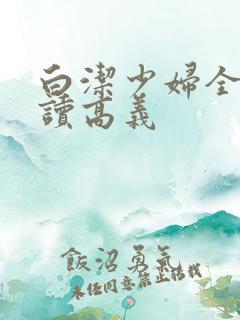 白潔少婦全
讀高義
飯沼勇氣
未任同意禁止結找